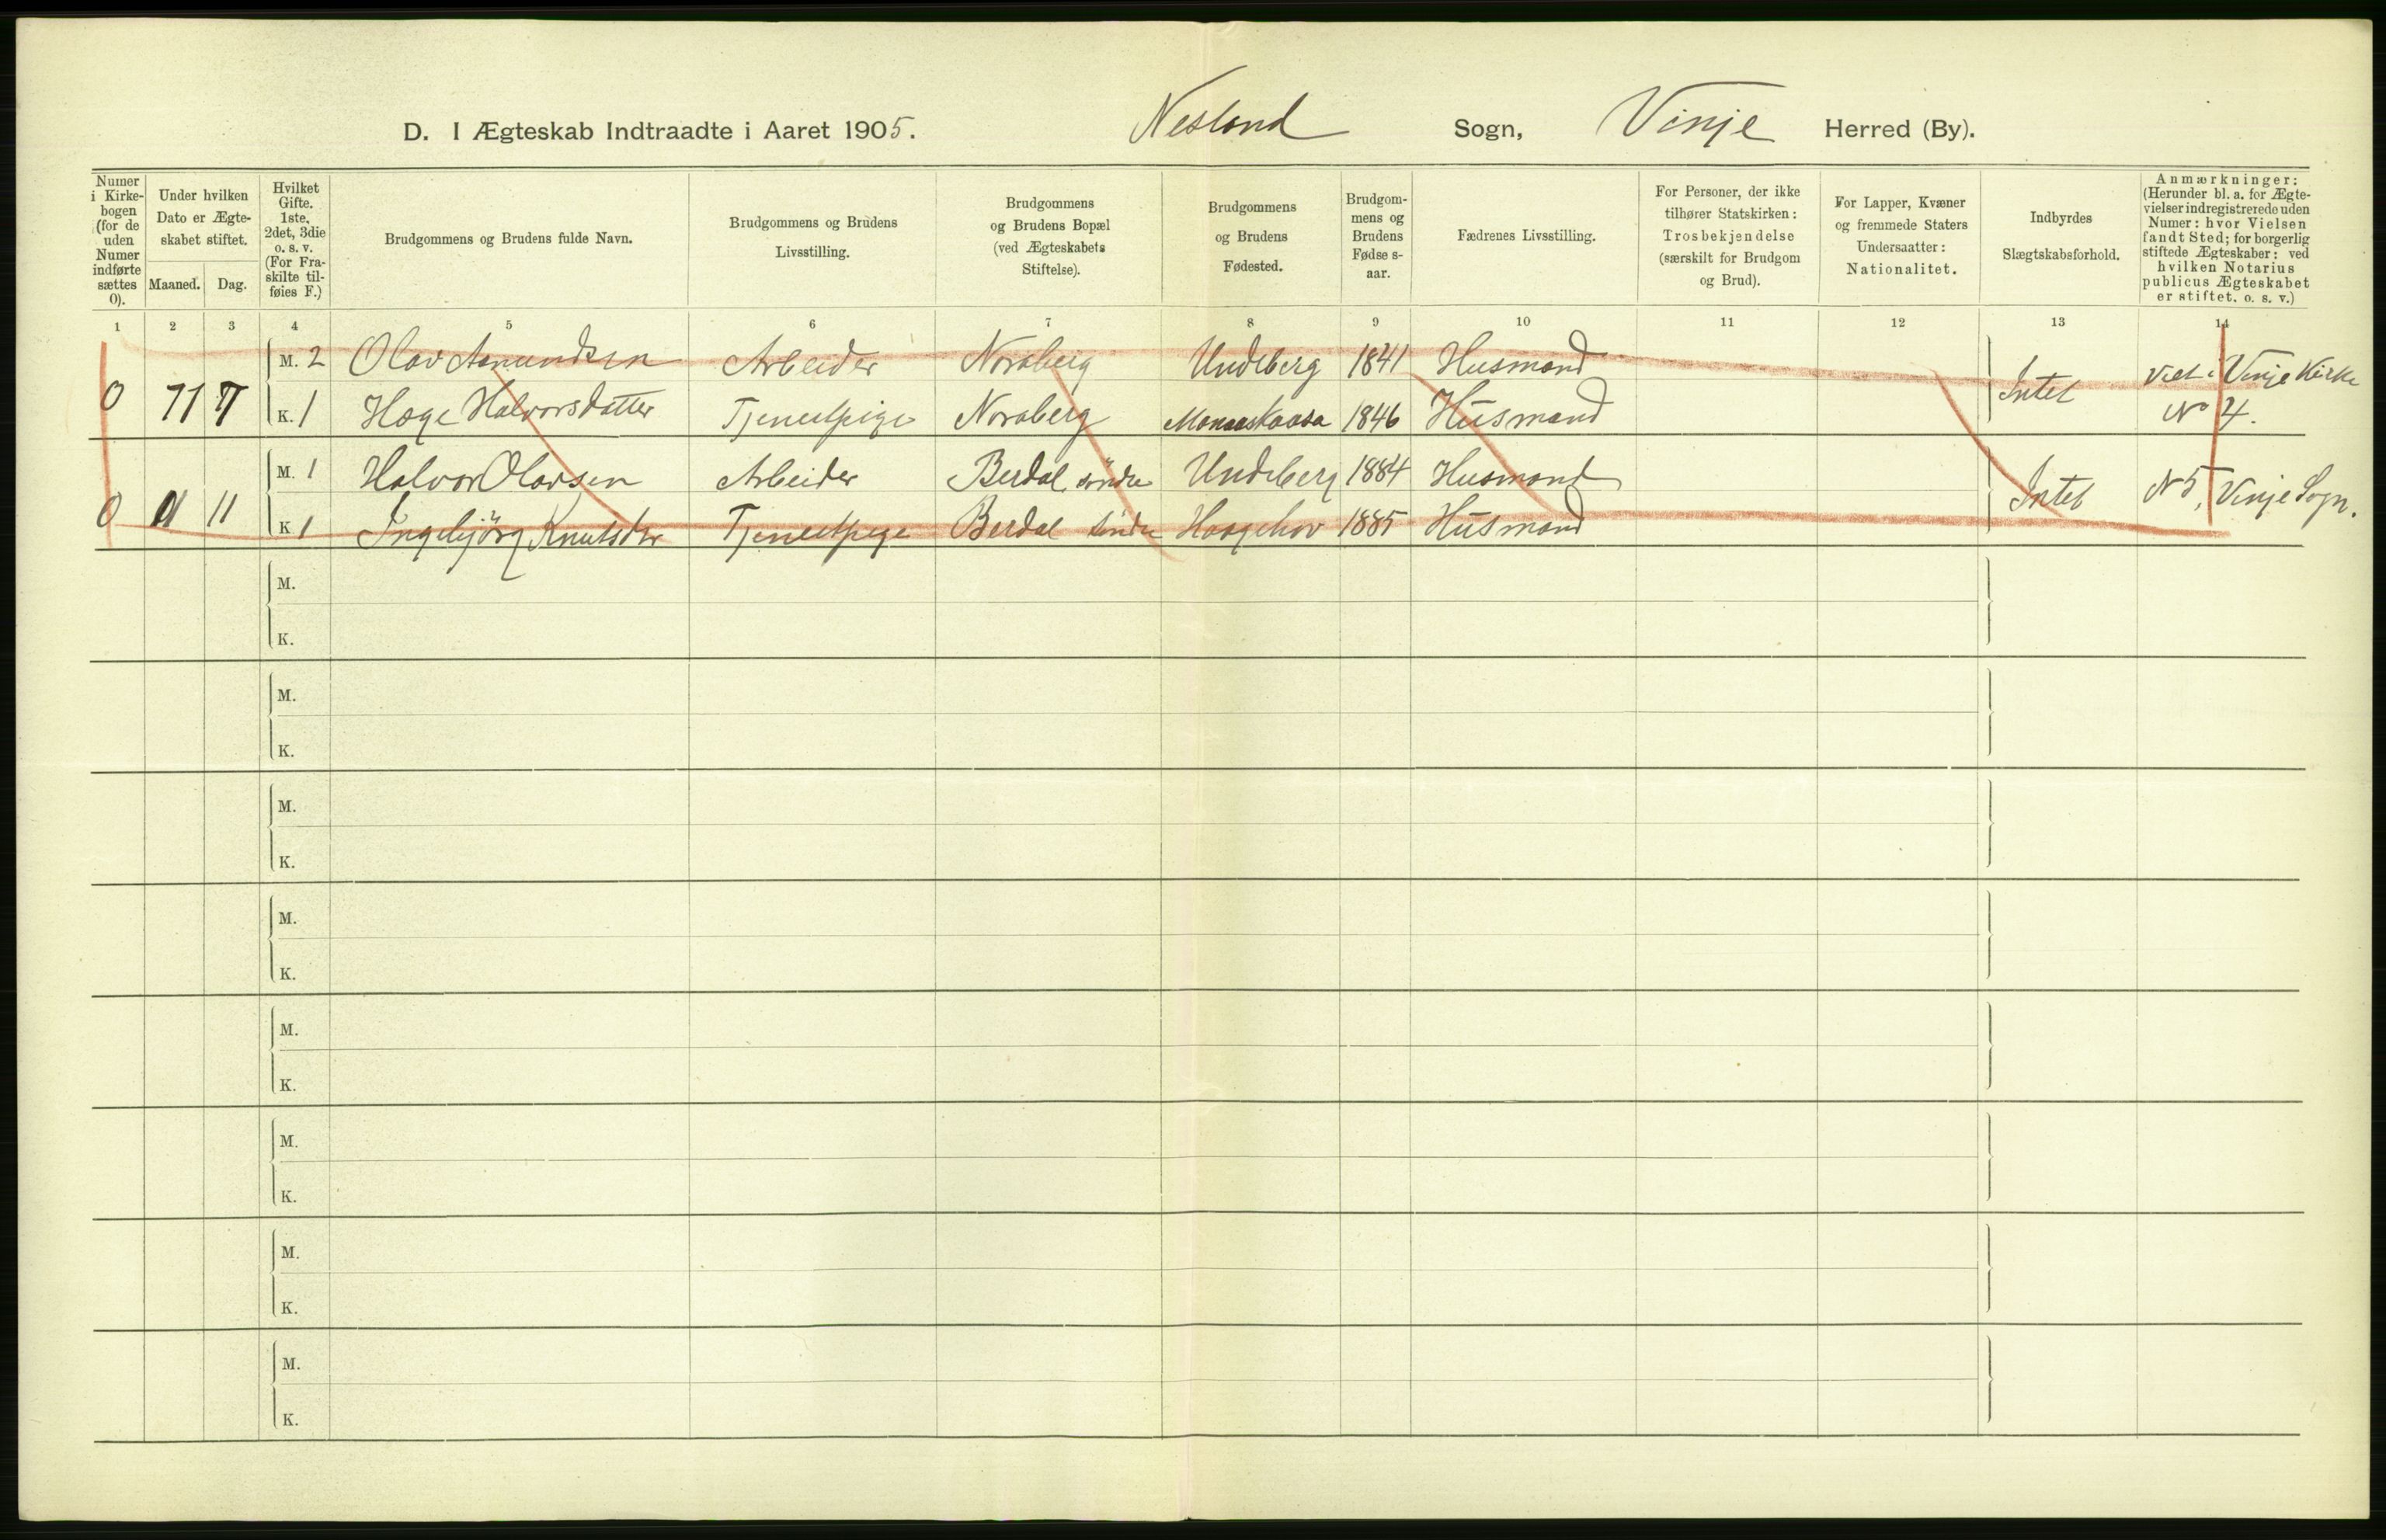 D. I Ægteskab Indtraadte i Aaret 1905. Nesland Sogn, Vinje Herred (By).
Numer i Kirkebogen (for de uden Numer indførte sættes 0).
Under hvilken Dato er Ægteskabet stiftet.
Maaned. Dag.
Hvilket Gifte. 1ste, 2det, 3die o. s. v. (For Fraskilte tilføies F.)
Brudgommens og Brudens fulde Navn.
Brudgommens og Brudens Livsstilling.
Brudgommens og Brudens Bopæl (ved Ægteskabets Stiftelse).
Brudgommens og Brudens Fødested.
Brudgommens og Brudens Fødselsaar.
Fædrenes Livsstilling.
For Personer, der ikke tilhører Statskirken: Trosbekjendelse (særskilt for Brudgom og Brud).
For Lapper, Kvæner og fremmede Staters Undersaatter: Nationalitet.
Indbyrdes Slægtskabsforhold.
Anmærkninger: (Herunder bl. a. for Ægtevielser indregistrerede uden Numer: hvor Vielsen fandt Sted; for borgerlig stiftede Ægteskaber: ved hvilken Notarius publicus Ægteskabet er stiftet. o. s. v.)
1 2 3 4 5 6 7 8 9 10 11 12 13 14
M. 2 Olav Asmundsen Arbeider Noraberg Undeberg 1841 Husmand Intet Viet i Vinje Kirke
0 11 K. 1 Hæge Halvorsdatter Tjenestpige Noraberg 1846 Husmand No 4.
M. 1 Halvor Olavsen Arbeider Berdal, söndre Undeberg 1884 Husmand Intet N 5, Vinje Sogn.
0 11 11 K 1 Ingebjörg Knutsdtr Tjenestpige Berdal söndre Haagehov 1885 Husmand
M.
K.
M.
K.
M.
K.
M.
K.
M.
K.
M.
K.
M.
K.
M.
K.